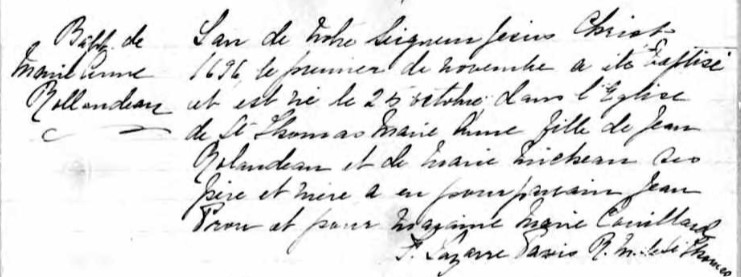 Bapt. de
Marie Anne
Rollandeau
Lan de notre Seigneur Jesus Christ
1696, le premier de novembre a ete Baptisé
et est né le 25 octobre dans l'Eglise
de St Thomas Marie Anne fille de Jean
Rolandeau et de Marie Micheau ses
père et mère a eu pour parain Jean
Prou et pour maraine Marie Couillard
P. Lazarre Paris R. M. de St Thomas